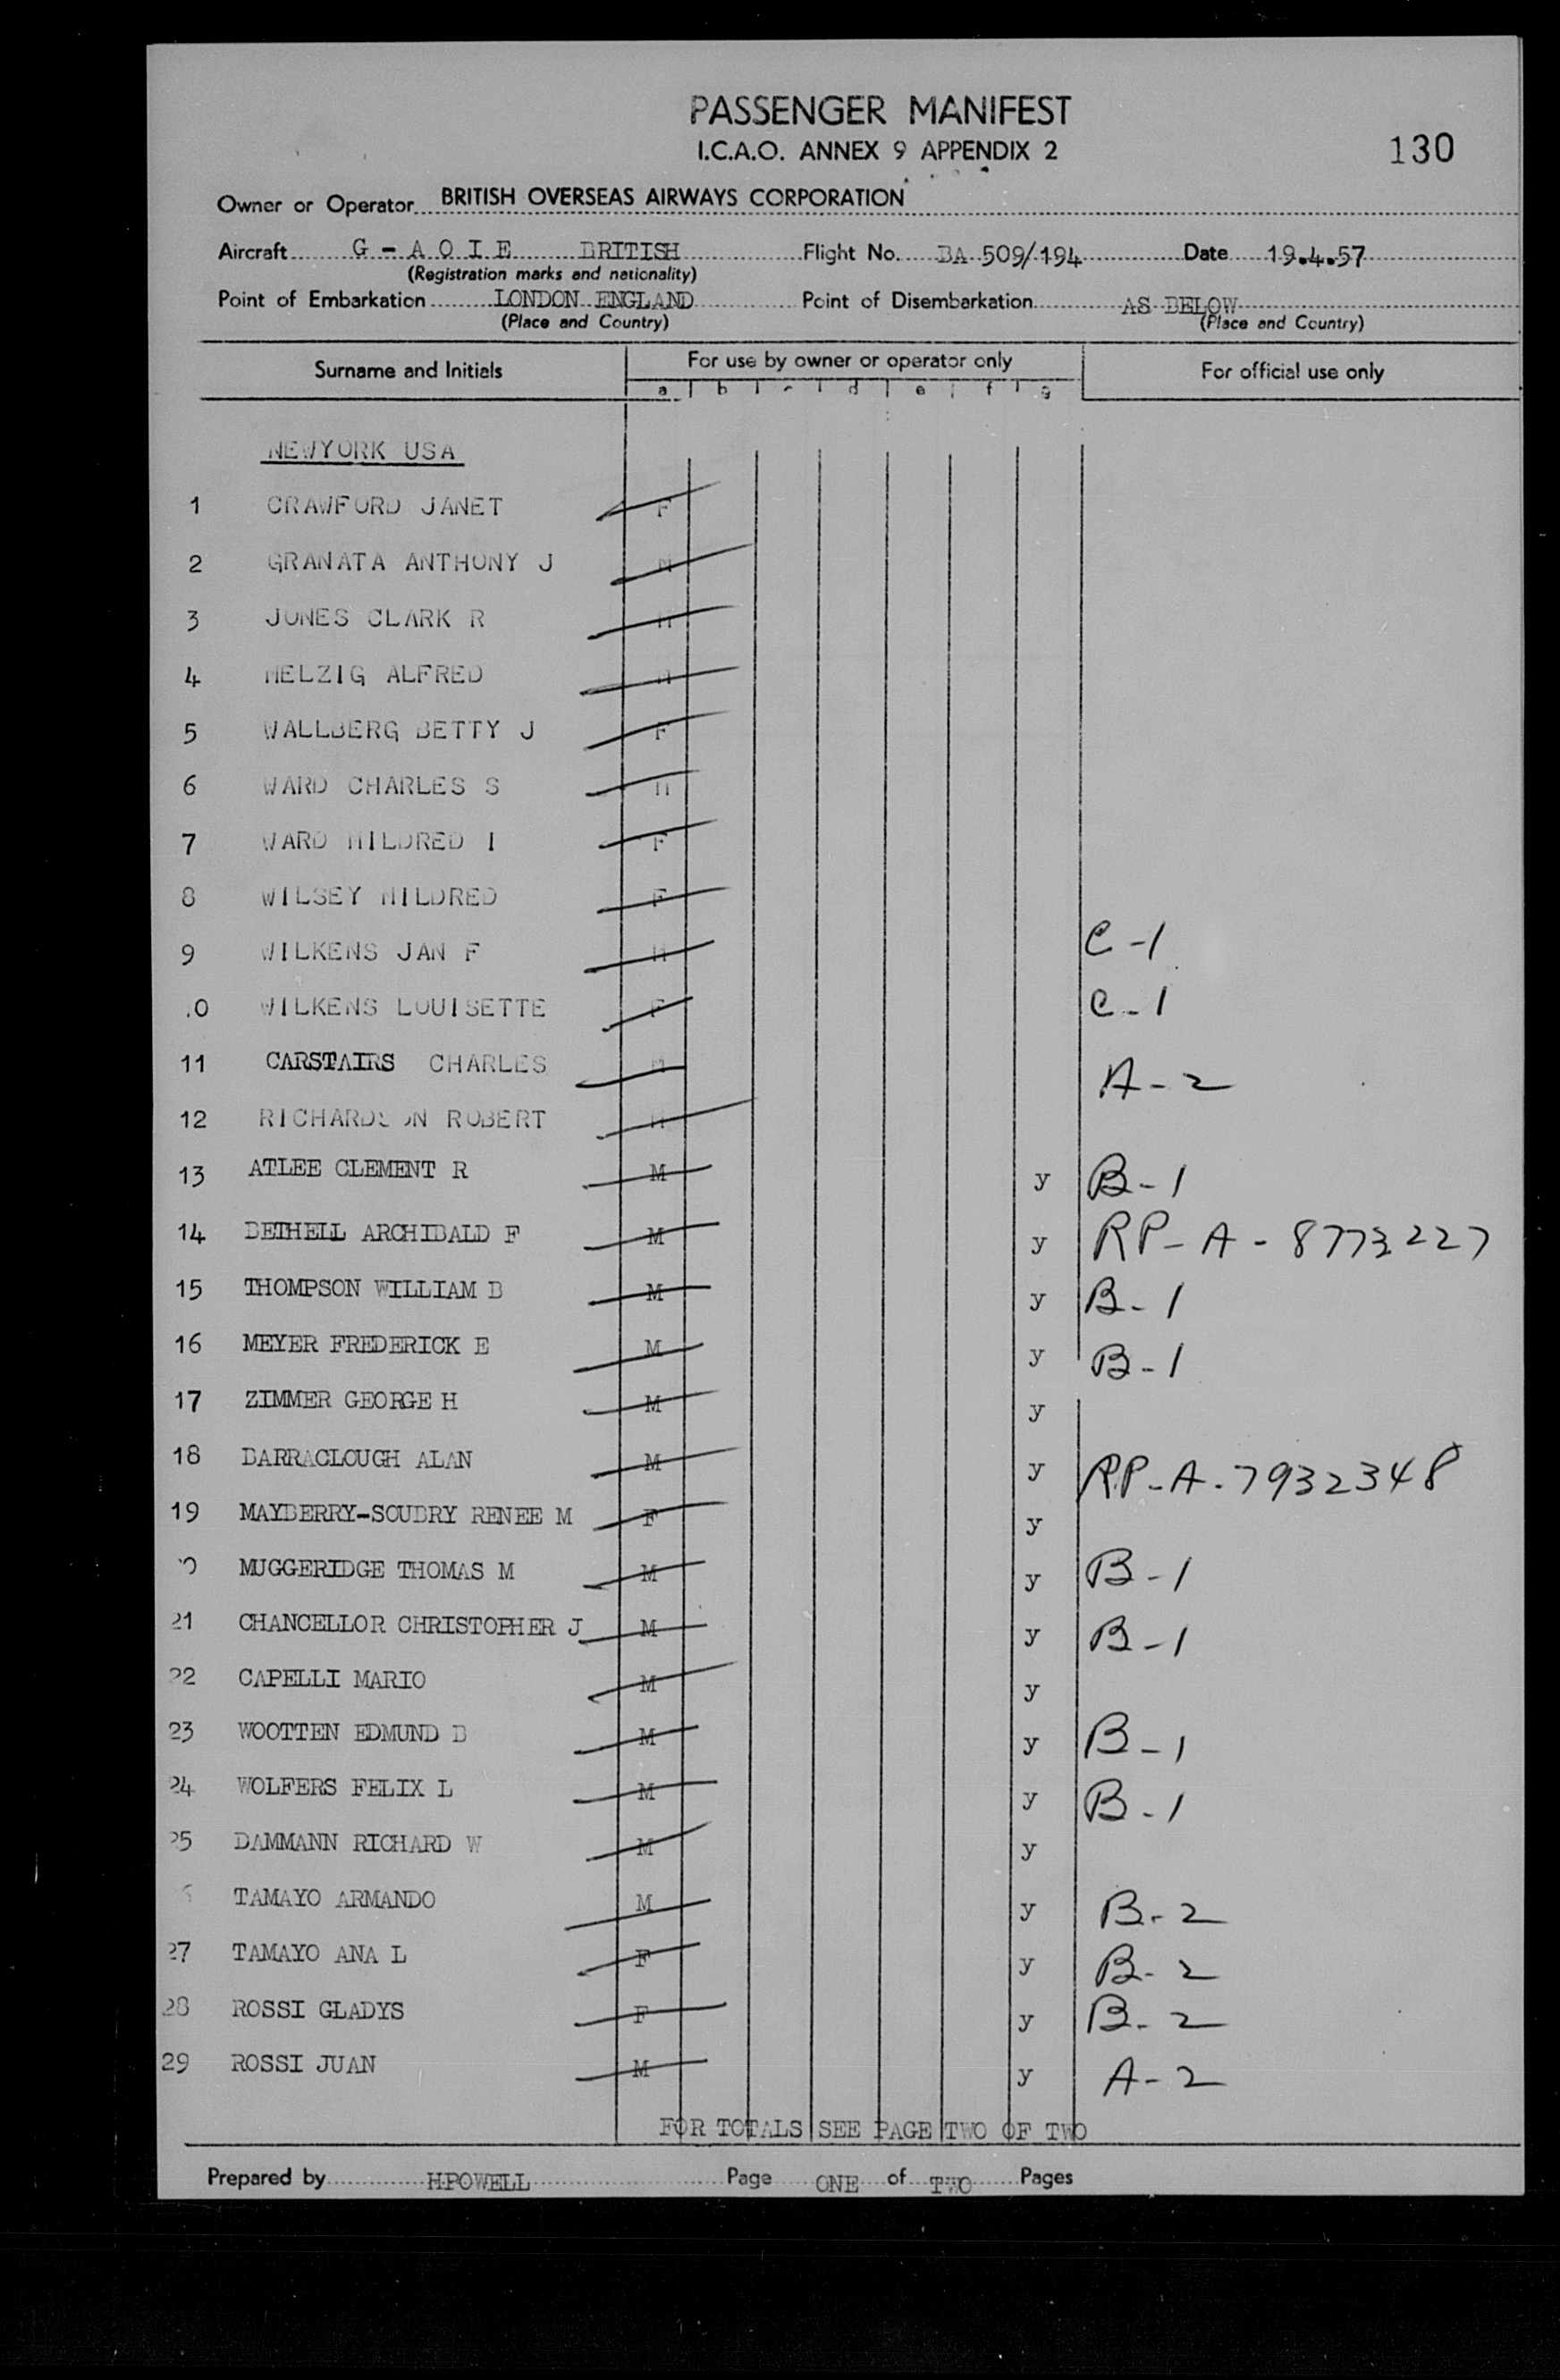 PASSENGER MANIFEST
I.C.A.O. ANNEX 9 APPENDIX 2
130
Owner or Operator BRITISH OVERSEAS AIRWAYS CORPORATION
Aircraft G - A O I E BRITISH Flight No. BA 509/194 Date 19.4.57
(Registration marks and nationality)
Point of Embarkation LONDON ENGLAND Point of Disembarkation AS BELOW
(Place and Country) (Place and Country)
Surname and Initials For use by owner or operator only For official use only
a b c d e f g
NEWYORK USA
1 CRAWFORD JANET F
2 GRANATA ANTHONY J M
3 JONES CLARK R M
4 MELZIG ALFRED M
5 WALLBERG BETTY J F
6 WARD CHARLES S M
7 WARD MILDRED I F
8 WILSEY MILDRED F
9 WILKENS JAN F M C-1
10 WILKENS LOUISETTE F C-1
11 CARSTAIRS CHARLES M A-2
12 RICHARDSON ROBERT M
13 ATLEE CLEMENT R M y B-1
14 BETHELL ARCHIBALD F M y RP-A-8773227
15 THOMPSON WILLIAM B M y B-1
16 MEYER FREDERICK E M y B-1
17 ZIMMER GEORGE H M y
18 BARRACLOUGH ALAN M y RP-A-7932348
19 MAYBERRY-SOUBRY RENEE M F y
20 MUGGERIDGE THOMAS M M y B-1
21 CHANCELLOR CHRISTOPHER J M y B-1
22 CAPELLI MARIO M y
23 WOOTTEN EDMUND B M y B-1
24 WOLFERS FELIX L M y B-1
25 DAMMANN RICHARD W M y
TAMAYO ARMANDO M y B-2
27 TAMAYO ANA L F y B-2
28 ROSSI GLADYS F y B-2
29 ROSSI JUAN M y A-2
FOR TOTALS SEE PAGE TWO OF TWO
Prepared by HPOWELL Page ONE of TWO Pages